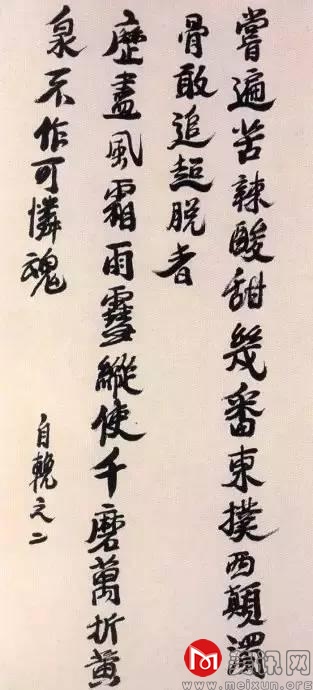 嘗遍苦辣酸甜幾番東撲西顛濁
骨敢追超脫者
歷盡風霜雨雪縱使千磨萬折黄
泉不作可憐魂
自輓之二
美讯网
www.meixun.org